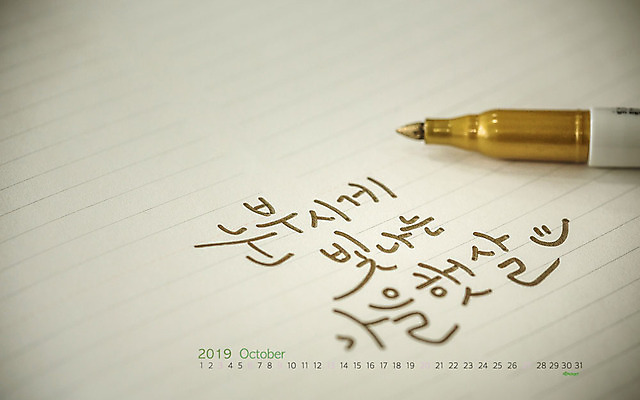 눈부시게
빛나는
가을햇살 :)
2019 October
1 2 4 5 7 8 10 11 12 14 15 16 17 18 19 21 22 23 24 25 26 28 29 30 31